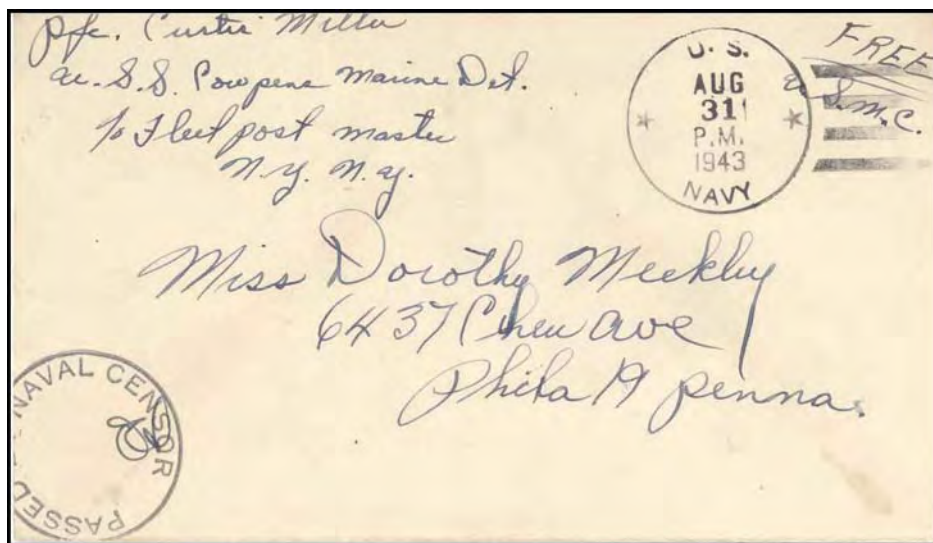 Pfc. Curtis Miller
U.S.S. Cowpens Marine Det.
℅ Fleet post master
N.Y. N.Y.
FREE
U.S.M.C.
U. S.
AUG
31
P.M.
1943
NAVY
Miss Dorothy Meekley
6437 Chew Ave
Phila 19 Penna.
PASSED NAVAL CENSOR